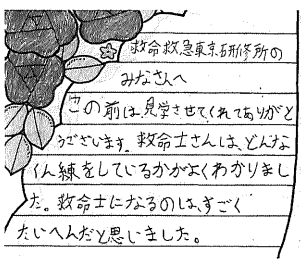 救命救急東京研修所の
みなさんへ
この前は、見学させてくれてありがと
うございます。救命士さんは、どんな
くん練をしているかがよくわかりまし
た。救命士になるのは、すごく
たいへんだと思いました。